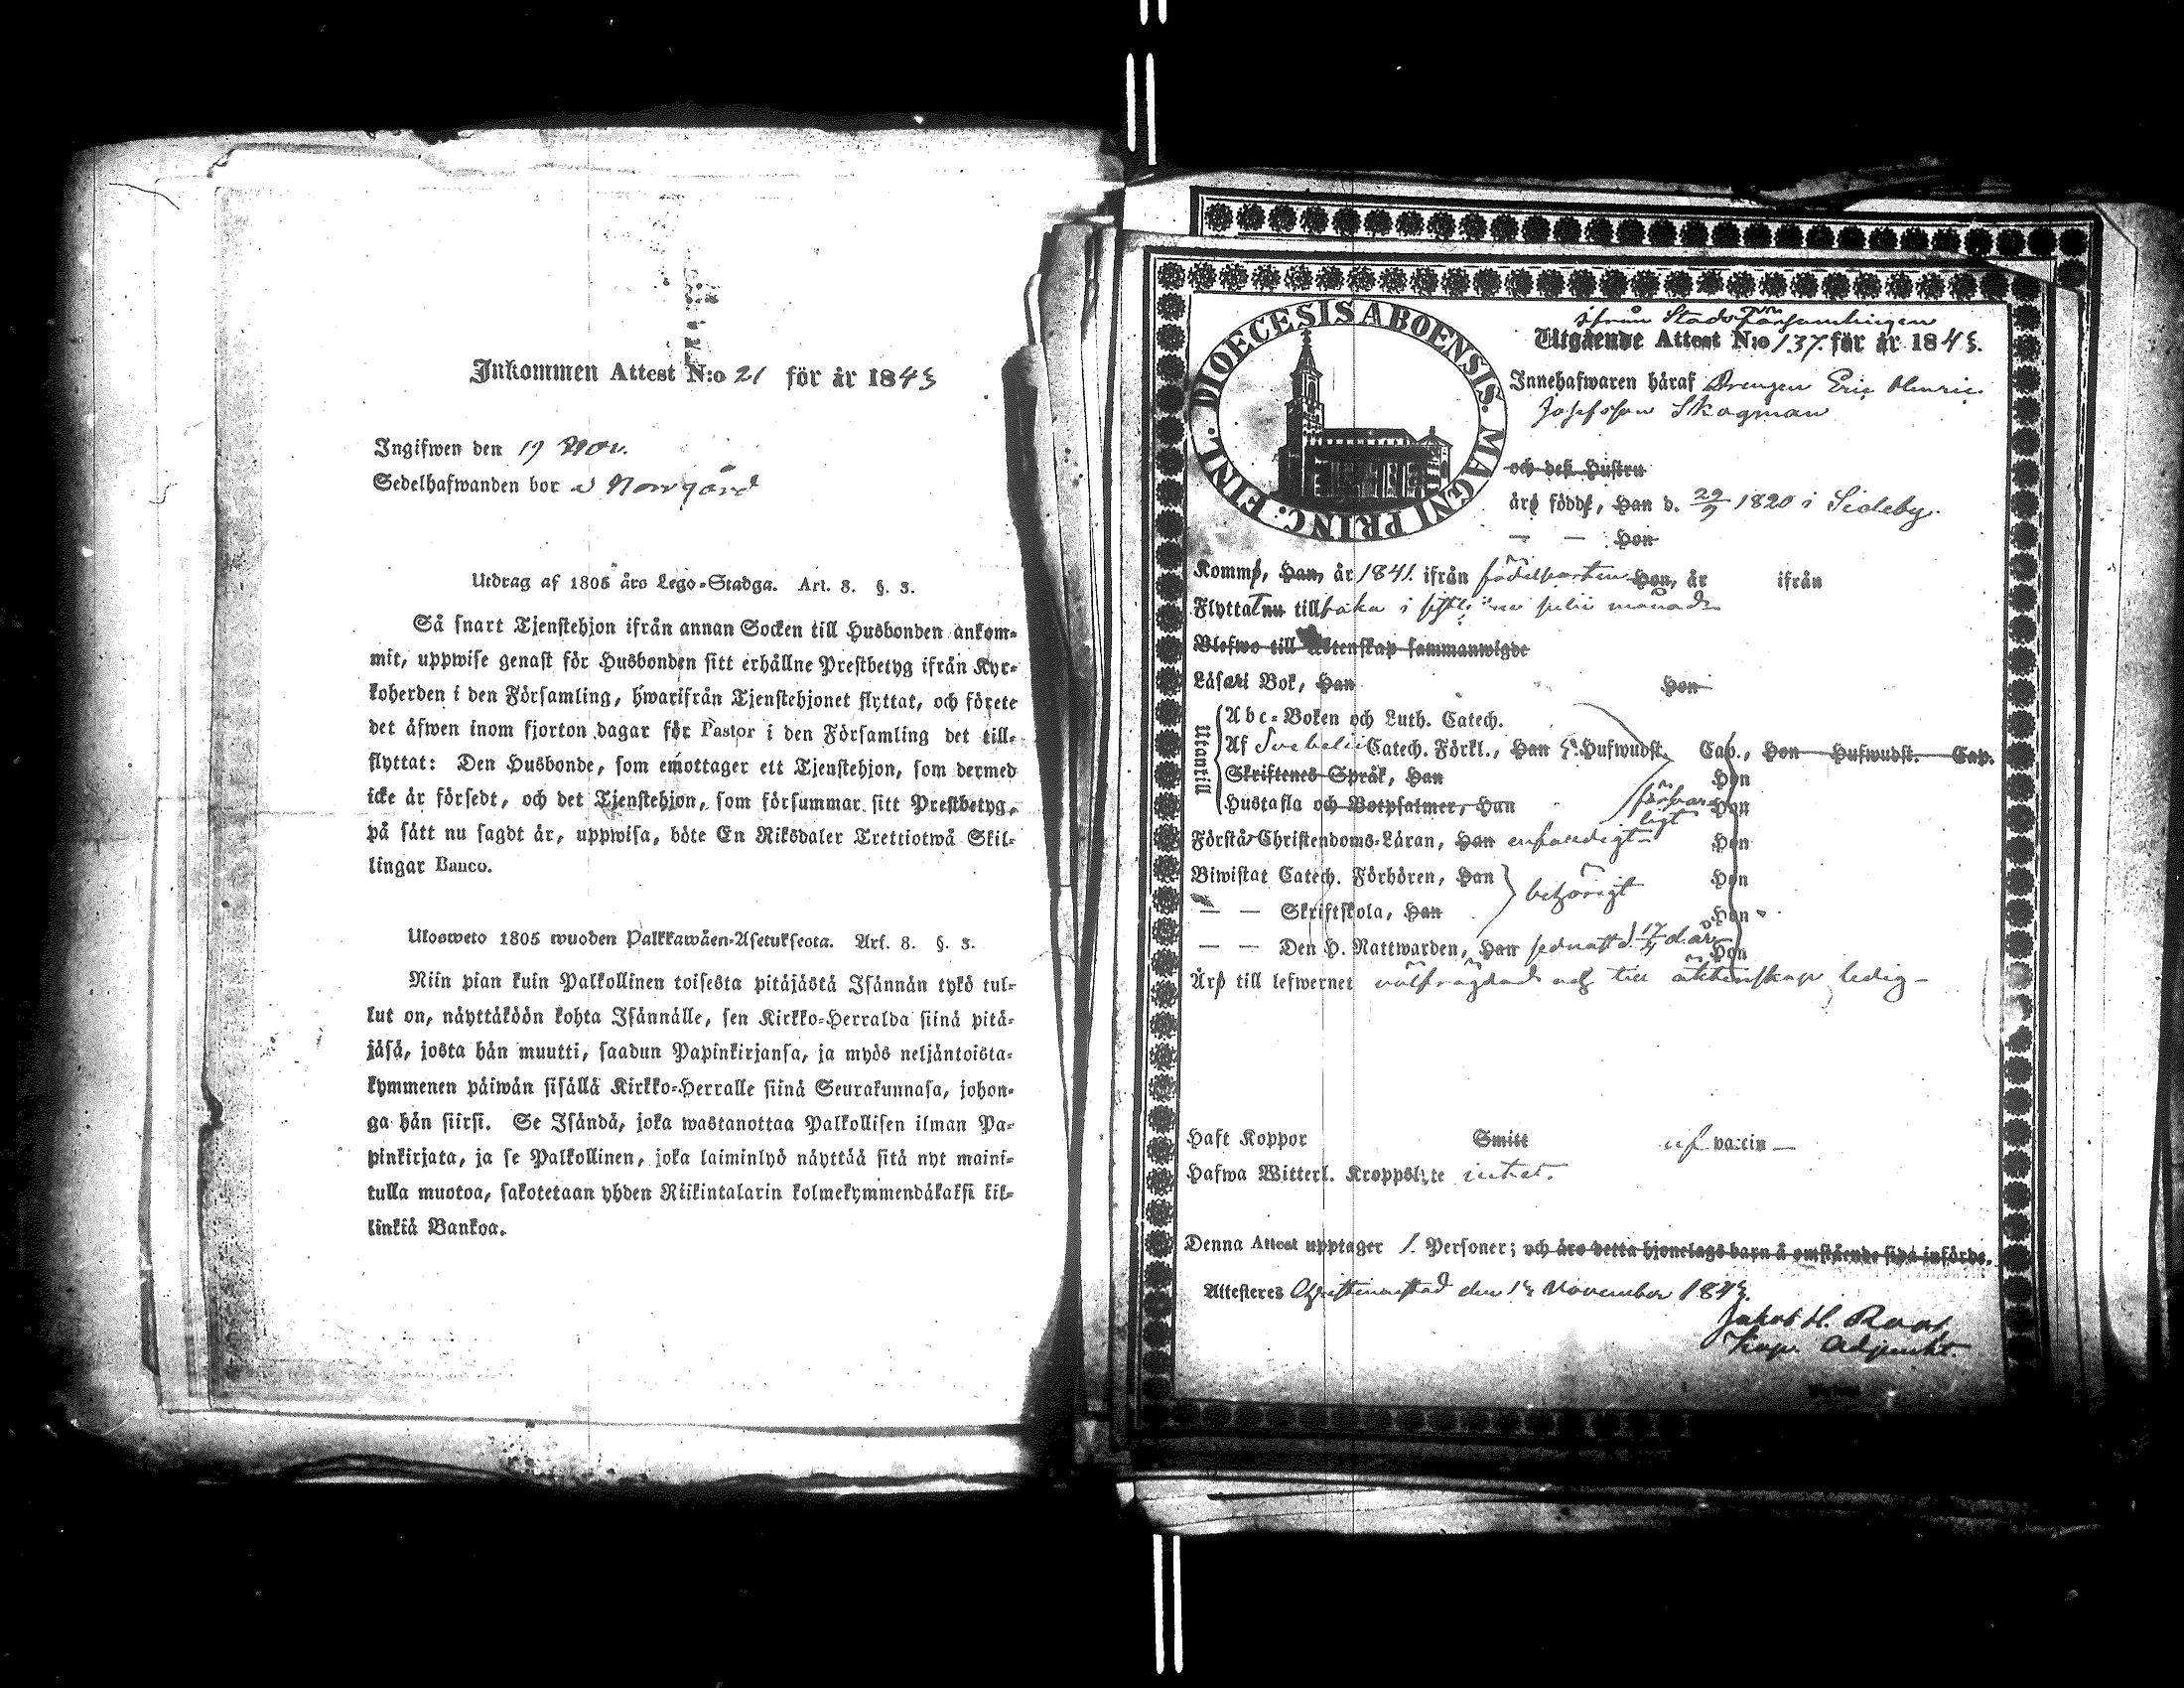 Inkommen Attest N:o 21 för år 1843
Ingifwen den 19 Nov.
Sedelhafwanden bor å Norrgård
Utdrag af 1805 års Lego-Stadga. Art. 8. §. 3.
Så snart Tjenstehjon ifrån annan Socken till Husbonden ankom-
mit, uppwise genast för Husbonden sitt erhållne Prestbetyg ifrån Kyr-
koherden i den Församling, hwarifrån Tjenstehjonet flyttat, och förete
det äfwen inom fjorton dagar för Pastor i den Församling det till-
flyttat: Den Husbonde, som emottager ett Tjenstehjon, som dermed
icke är försedt, och det Tjenstehjon, som försummar sitt Prestbetyg,
på sätt nu sagdt är, uppwisa, böte En Riksdaler Trettiotwå Skil-
lingar Banco.
Ulosweto 1805 wuoden Palkkawäen-Asetuksesta. Art. 8. §. 3.
Niin pian kuin Palkollinen toisesta pitäjästä Isännän tykö tul-
lut on, näyttäköön kohta Isännälle, sen Kirkko-Herralda siinä pitä-
jäsä, josta hän muutti, saadun Papinkirjansa, ja myös neljäntoista-
kymmenen päiwän sisällä Kirkko-Herralle siinä Seurakunnasa, johon-
ga hän siirsi. Se Isändä, joka wastanottaa Palkollisen ilman Pa-
pinkirjata, ja se Palkollinen, joka laiminlyö näyttää sitä nyt maini-
tulla muotoa, sakotetaan yhden Riikintalarin kolmekymmendäkaksi kil-
linkiä Bankoa.
DIOECESIS ABOENSIS. MAGNI PRINC: FINL.
ifrån Stadsförsamlingen
Utgående Attest N:o 137 för år 1843.
Innehafwaren häraf Drengen Eric Henric
Josefsson Skogman
och deß Hustru
äro född, Han d. 22/9 1820 i Sideby.
— — Hon
Komm, Han, år 1841 ifrån födelseorten Hon, år ifrån
Flyttat nu tillbaka i Juli månad
Blefwo till Äktenskap sammanwigde
Läser i Bok, Han Hon
Utantill
Abc-Boken och Luth. Catech.
Af Svebelii Catech. Förkl., Han Hufwudst. Cap., Hon Hufwudst. Cap.
Skriftenes Språk, Han Hon
Hustafla och Botpsalmer, Han försvarligt Hon
Förstår Christendoms-Läran, Han enfaldigt Hon
Biwistat Catech. Förhören, Han behörigt Hon
— — Skriftskola, Han Hon
— — Den H. Nattwarden, Han sednast d. 17/9 d. år Hon
Är till lefwernet välfrägdad och till äktenskap ledig —
Haft Koppor Smitt af vaccin —
Hafwa Witterl. Kroppslyte intet.
Denna Attest upptager 1. Personer; och äro detta hjonelags barn å omstående sida införde.
Attesteres Christinestad den November 1843.
Jakob H. Roos
Kap. Adjunkt.